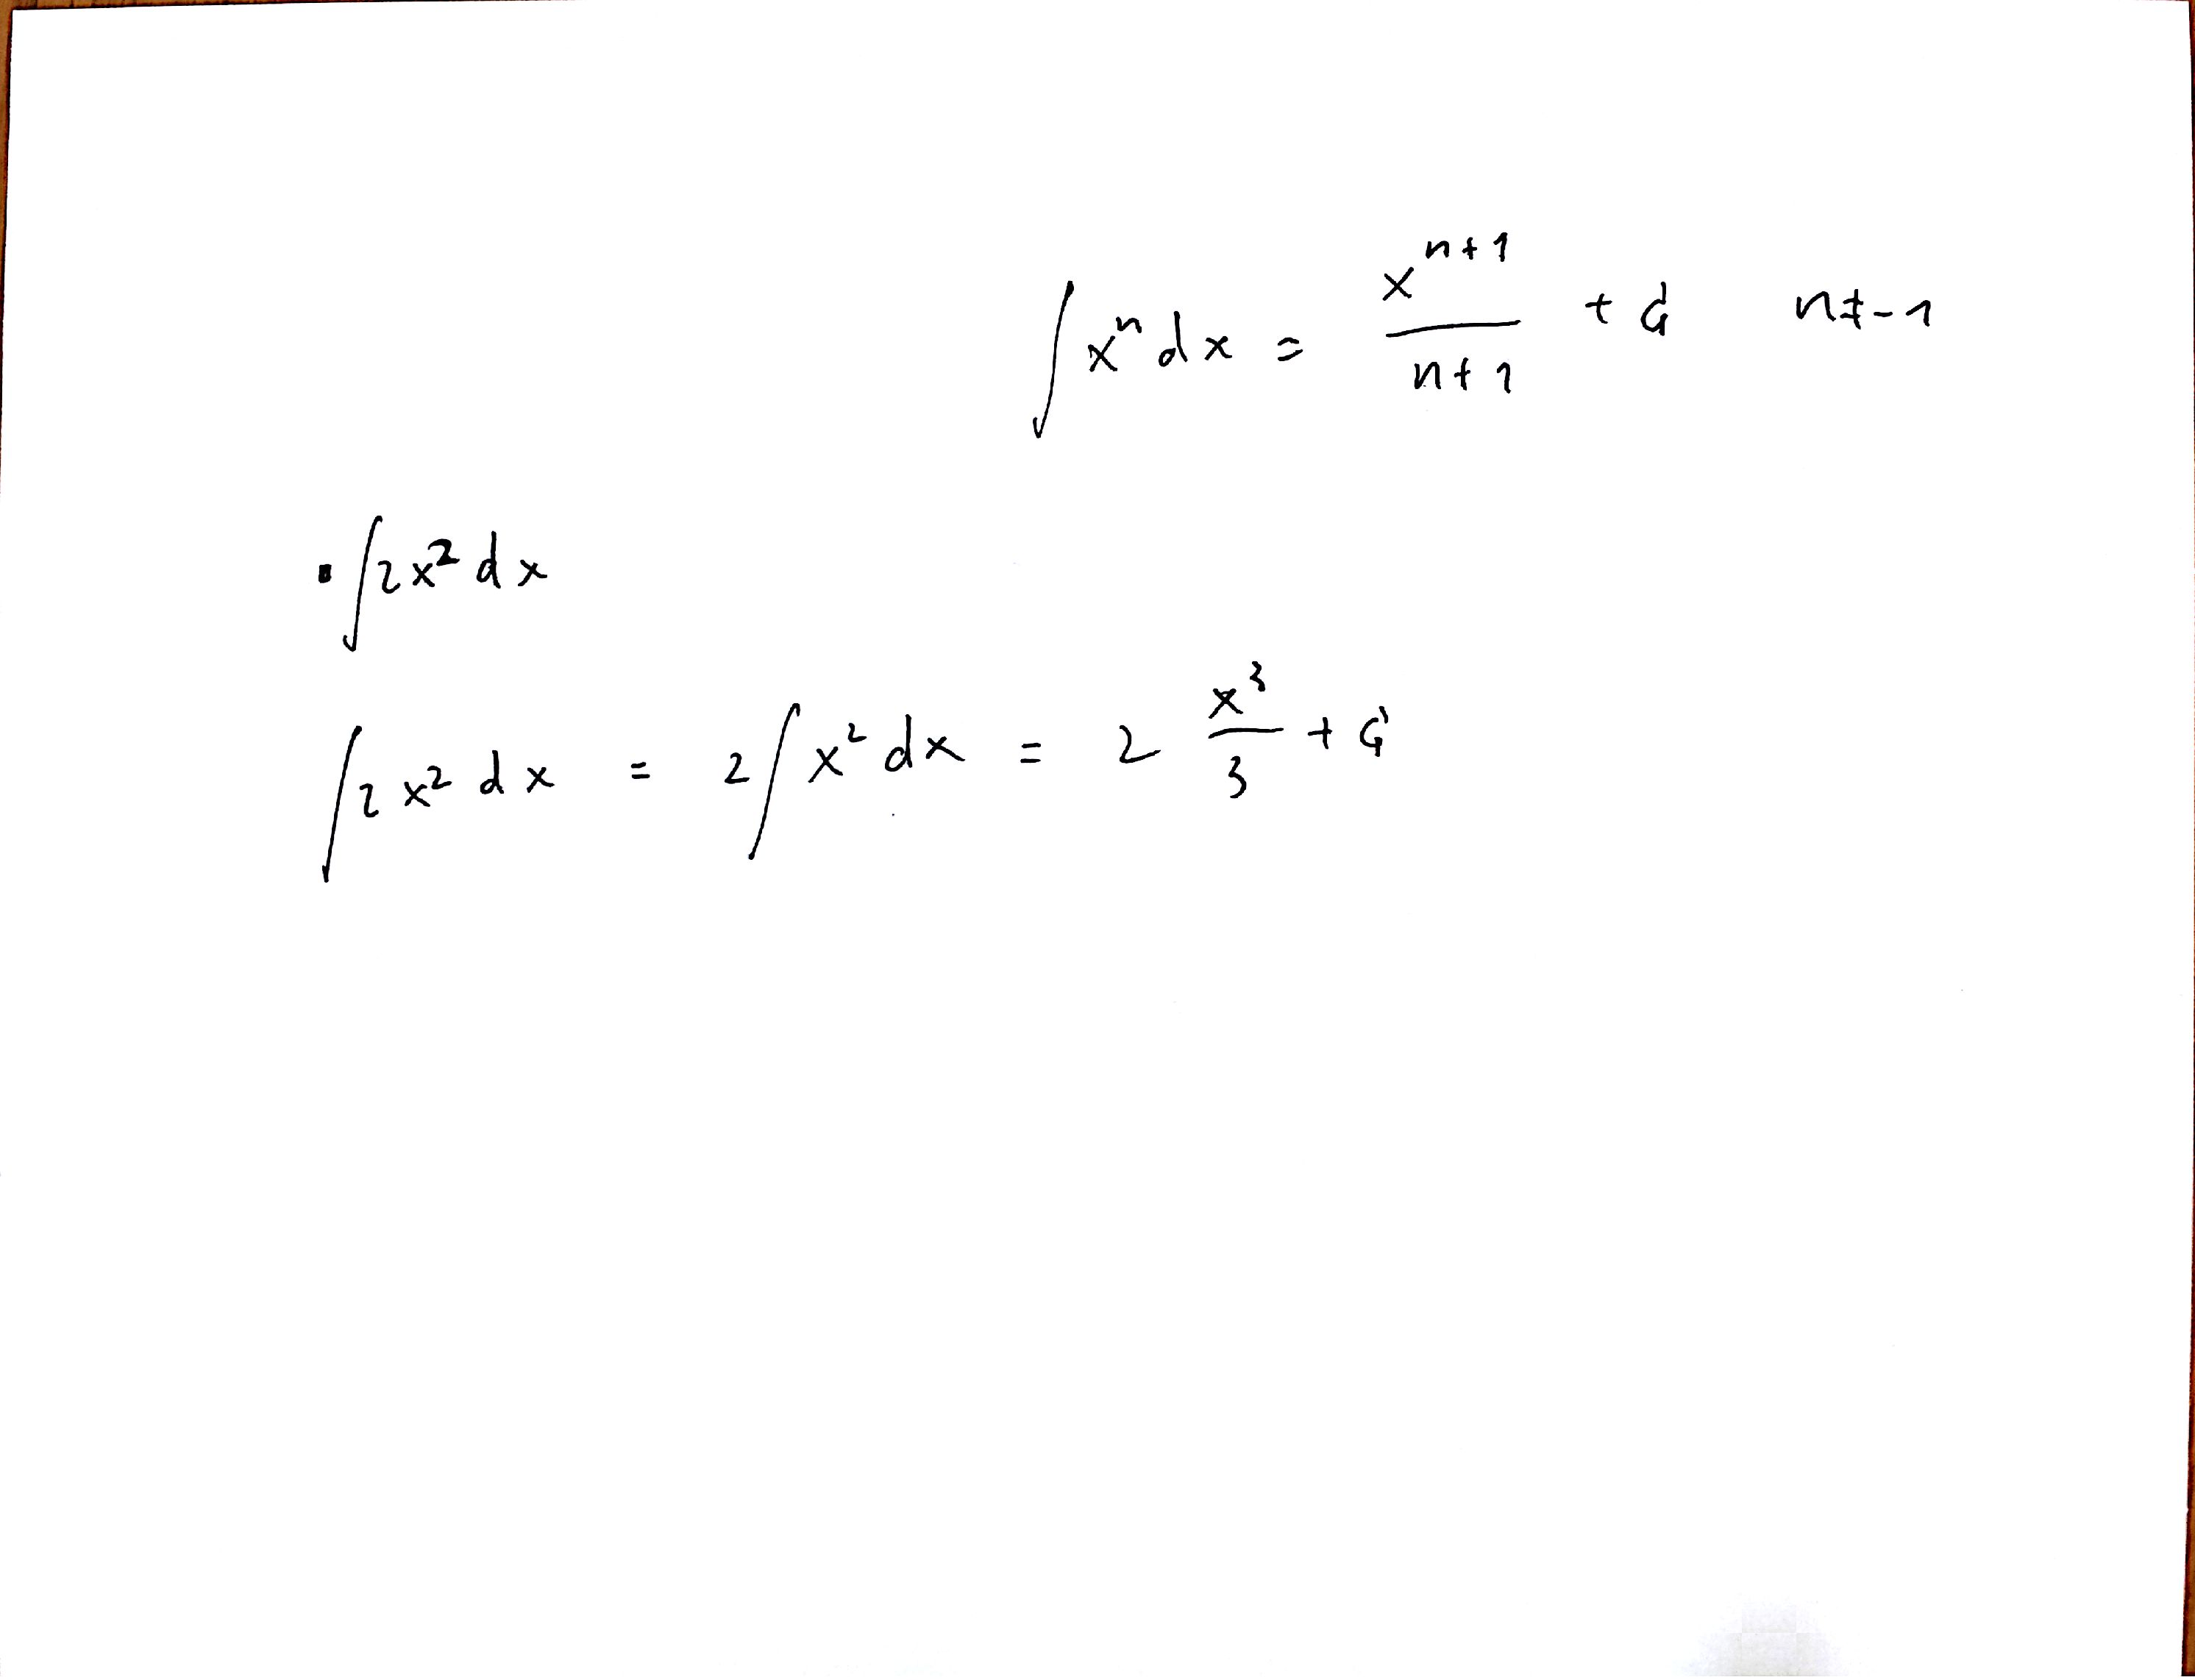 ∫ xⁿ dx = xⁿ⁺¹ / n+1 + C n ≠ -1
▪ ∫ 2x² dx
∫ 2x² dx = 2 ∫ x² dx = 2 x³/3 + C